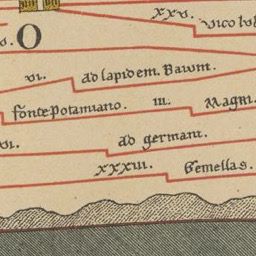 xxv.
v. O
vico
vi. ad lapidem. Baium.
fonte potamiano. iii. Magni
vi. ad germani.
xxxiii. Gemellas.